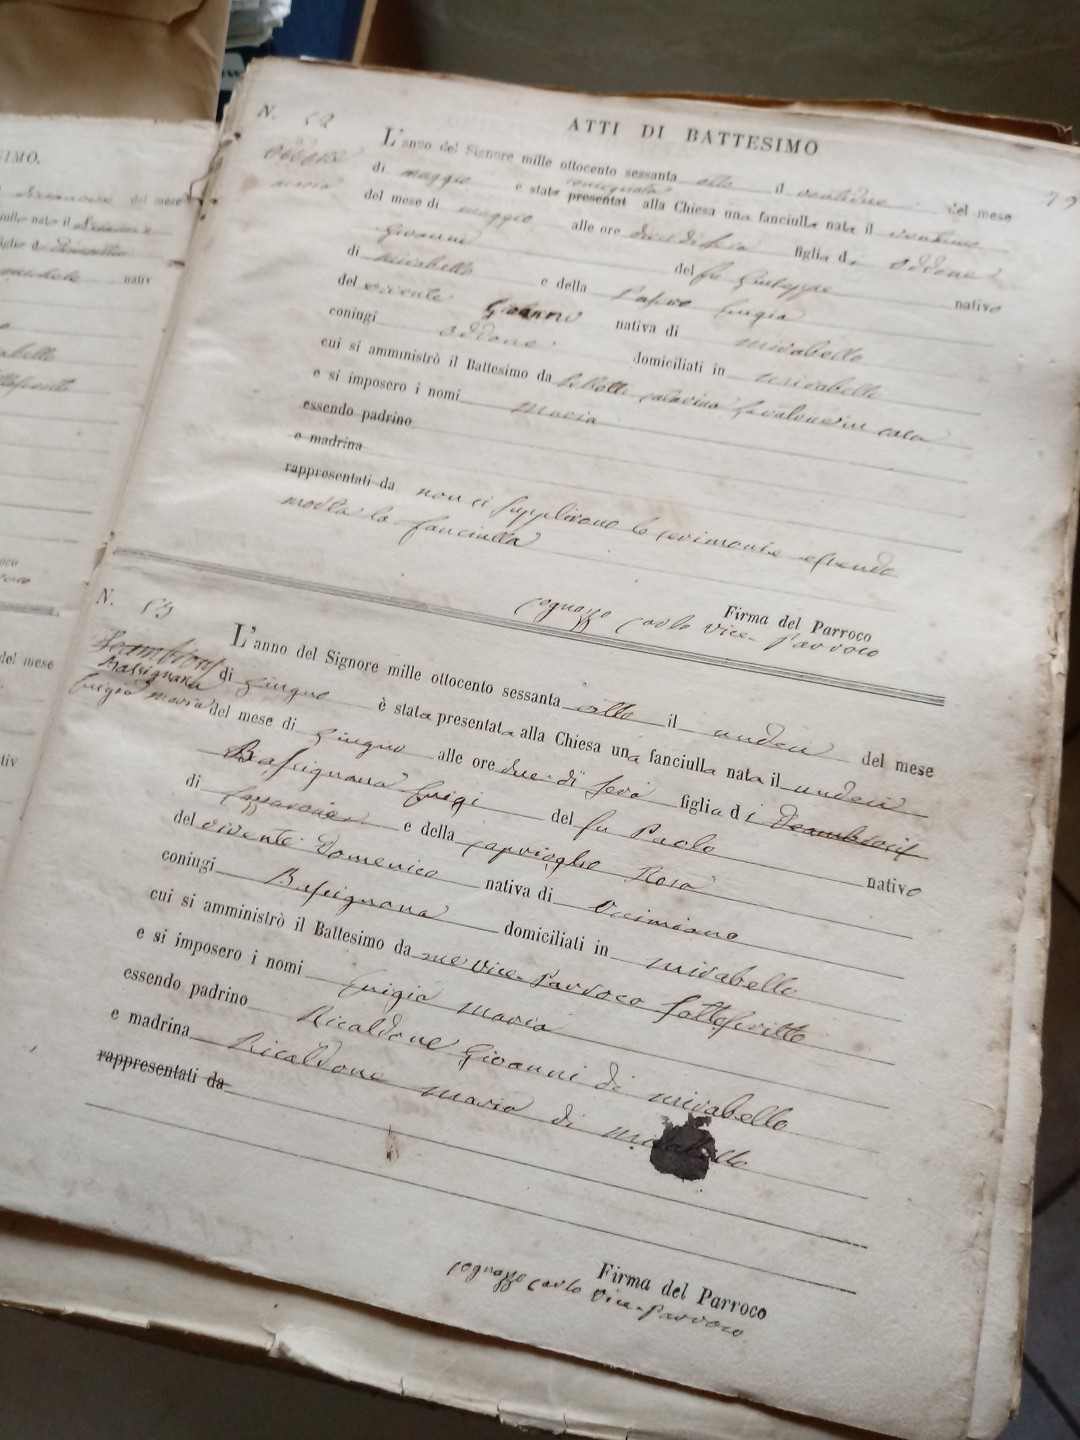 ATTI DI BATTESIMO
N. 52
79
Oddone
maria
L'anno del Signore mille ottocento sessanta otto il ventidue del mese
di maggio e stata consegnata presentat alla Chiesa una fanciulla nata il ventuno
del mese di maggio alle ore dieci di sera figlia di Oddone
Giovanni del fu Giuseppe nativo
di mirabello e della Luigia
del vivente Giovanni nativa di mirabello
coniugi Oddone domiciliati in mirabello
cui si amministrò il Battesimo da catarina in casa
e si imposero i nomi maria
essendo padrino
e madrina
rappresentati da non si supplirono le cerimonie essendo
morta la fanciulla
Firma del Parroco
cognazzo carlo vice-Parroco
N. 53
Bassignana
luigia maria
L'anno del Signore mille ottocento sessanta otto il undeci del mese
di giugno è stata presentata alla Chiesa una fanciulla nata il undeci
del mese di giugno alle ore due di sera figlia di
Bassignana luigi del fu Paolo nativo
di e della caprioglio Rosa
del vivente Domenico nativa di Occimiano
coniugi Bassignana domiciliati in mirabello
cui si amministrò il Battesimo da me vice-Parroco sottoscritto
e si imposero i nomi luigia maria
essendo padrino Ricaldone Giovanni di mirabello
e madrina Ricaldone maria di mirabello
rappresentati da
Firma del Parroco
cognazzo carlo vice-Parroco
SIMO.
del mese
nativ
del mese